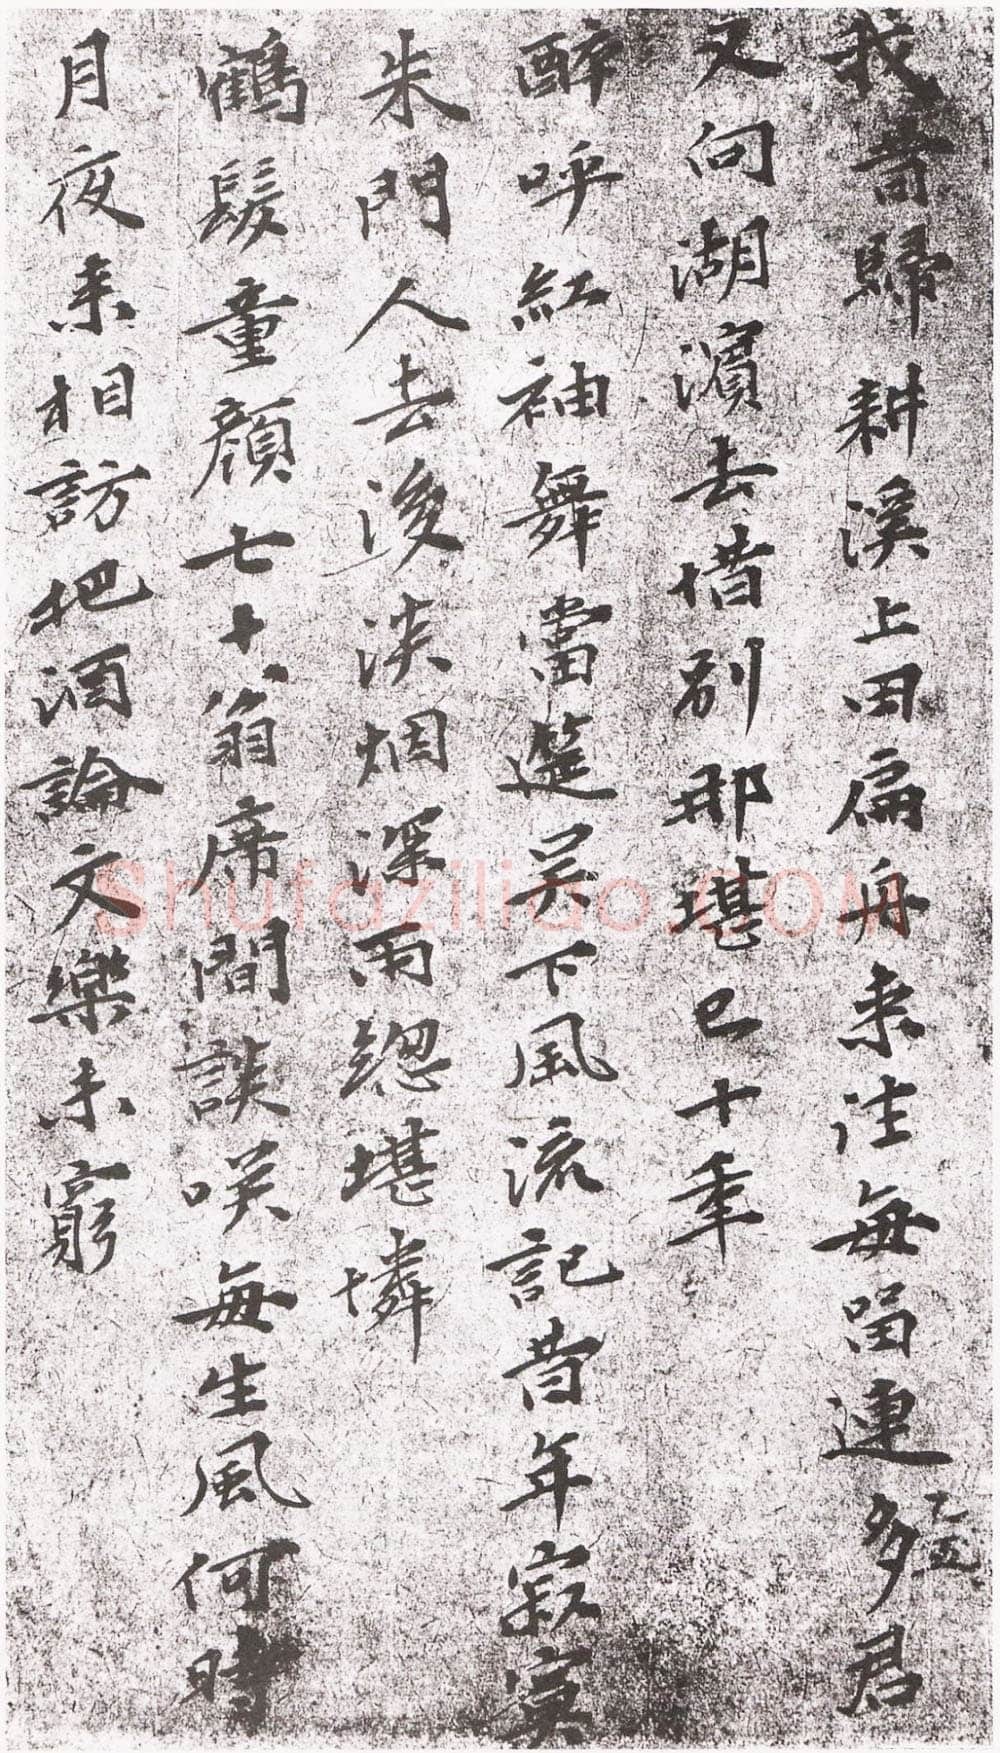 我昔歸耕溪上田扁舟来往每留連多君
又向湖濱去惜别那堪已十年
醉呼紅袖舞當筵吴下風流記昔年寂寞
朱門人去後淡烟深雨總堪憐
鶴髮童顔七十翁席間談咲每生風何時
月夜来相訪把酒論文樂未窮
Shufaziliao.COM